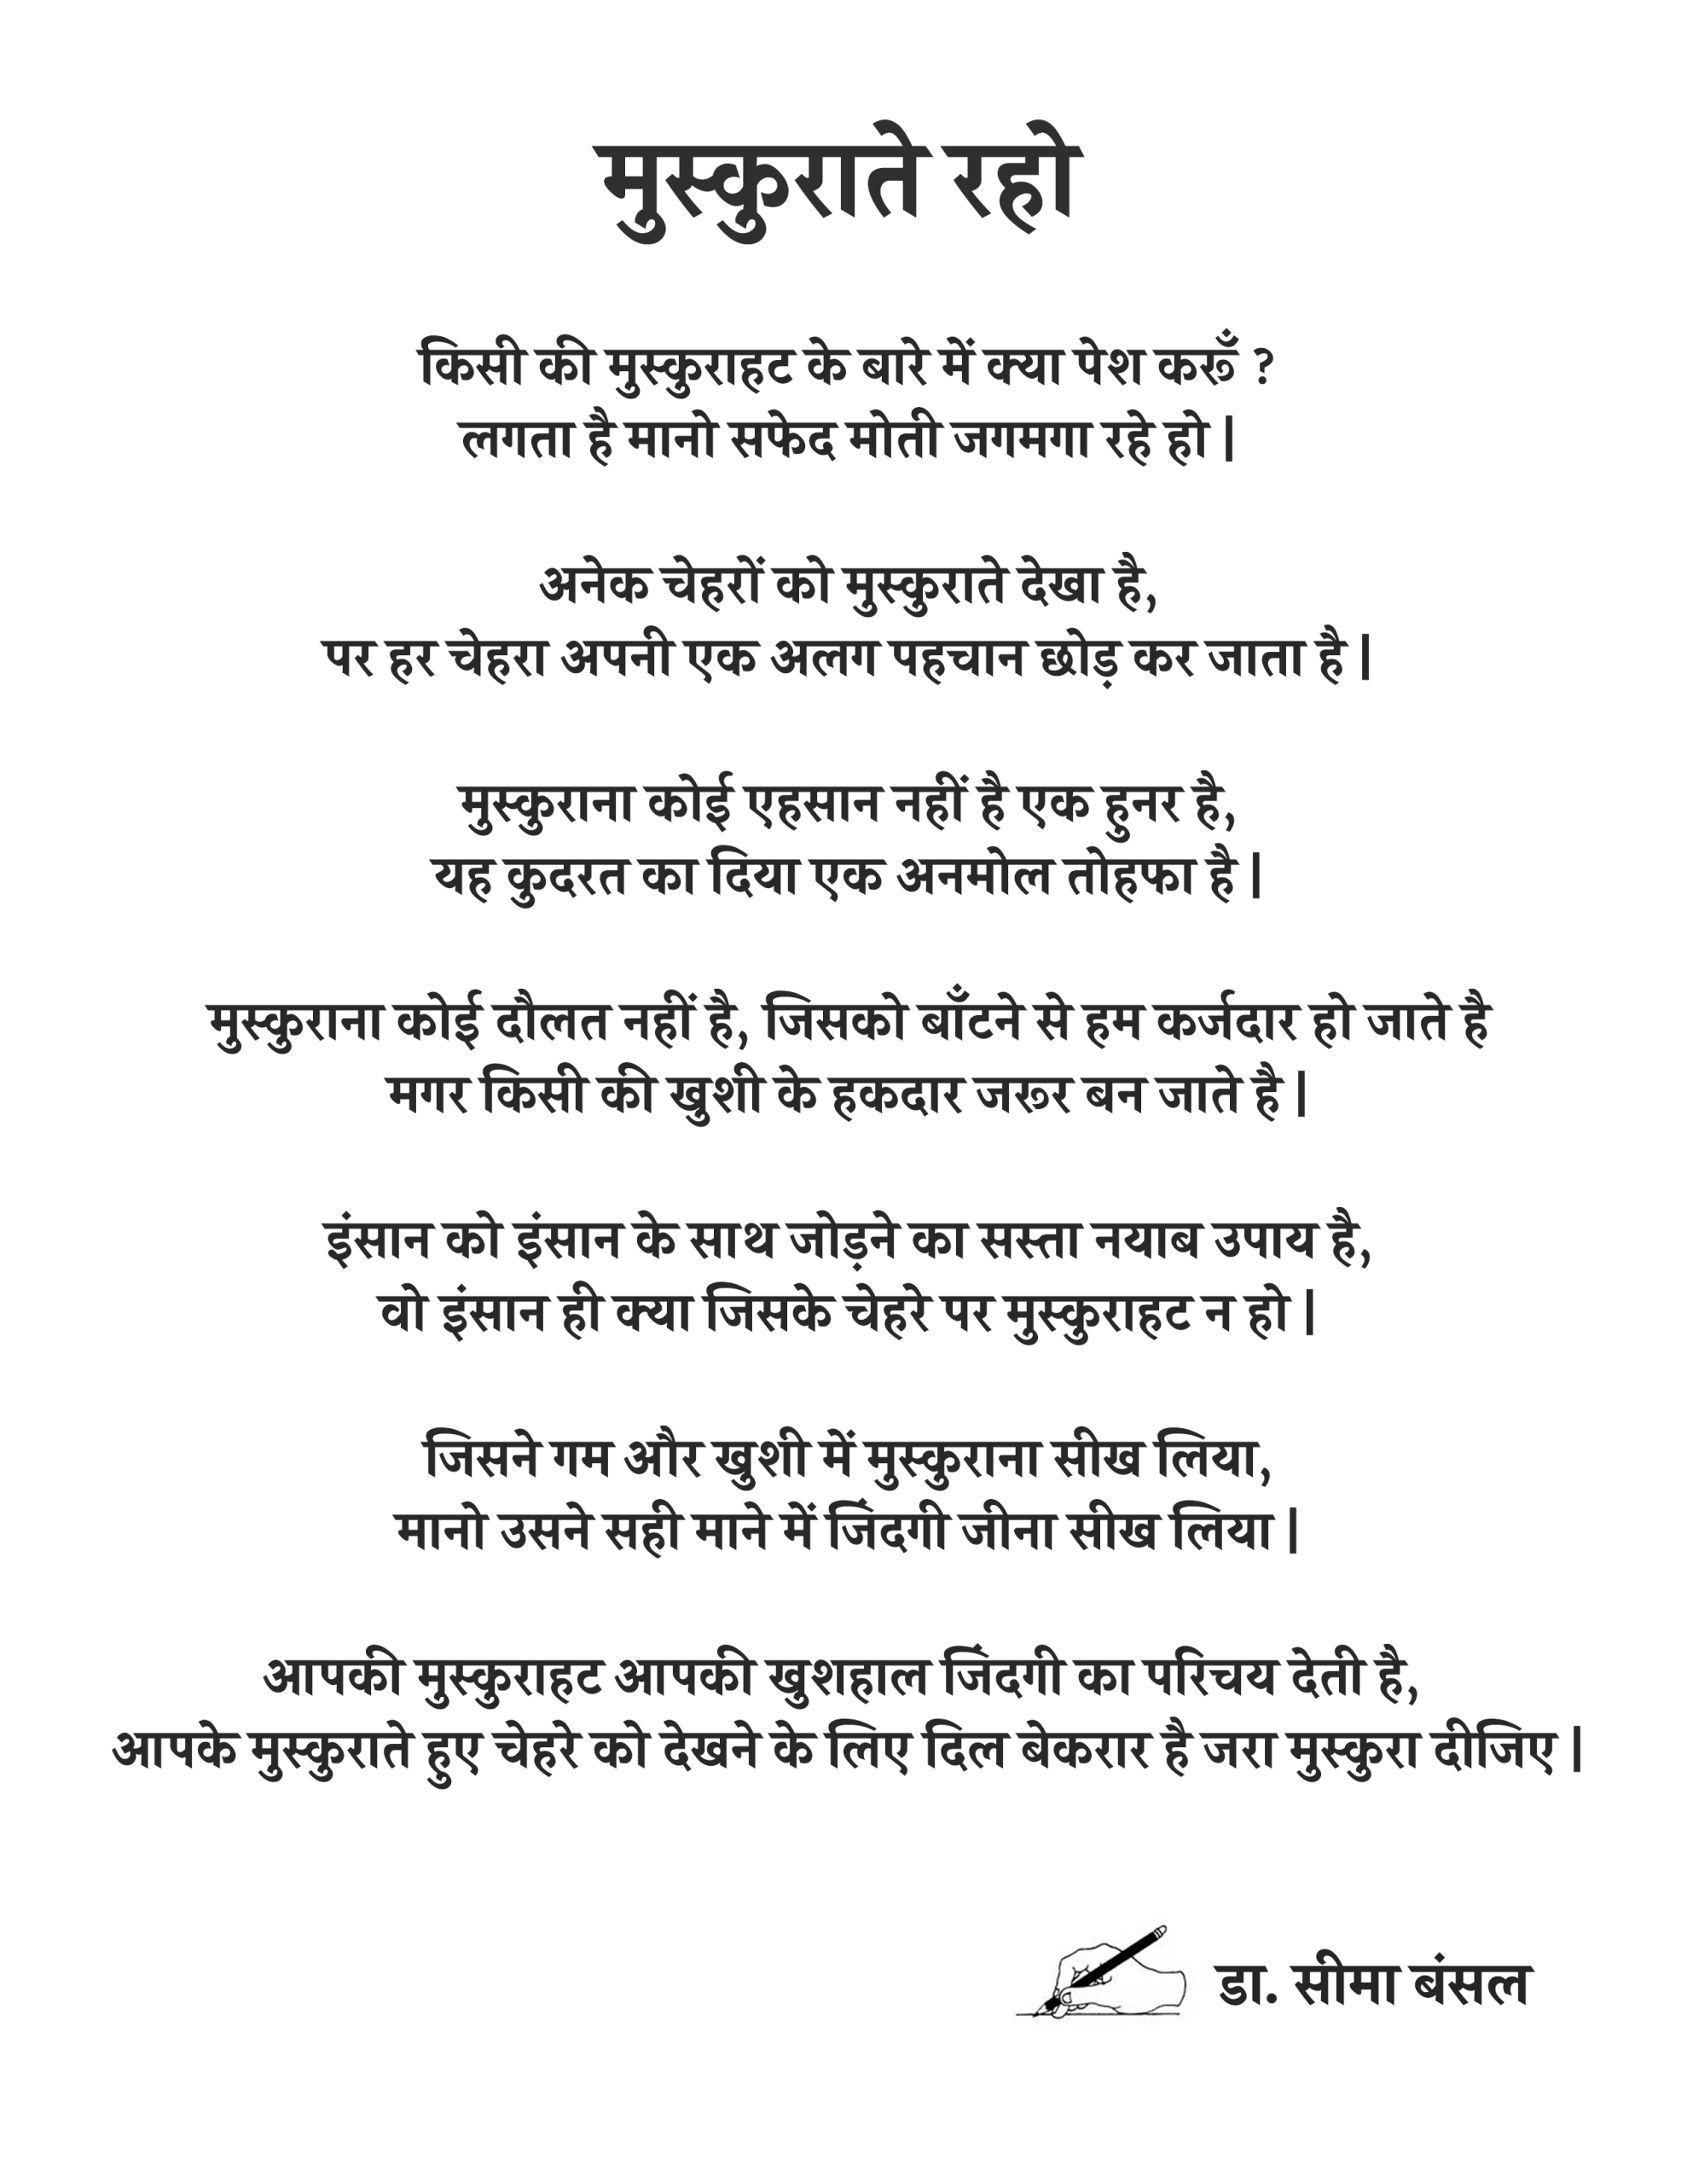 मुस्कुराते रहो
किसी की मुस्कुराहट के बारे में क्या पेश करूँ ?
लगता है मानो सफेद मोती जगमगा रहे हो |
अनेक चेहरों को मुस्कुराते देखा है,
पर हर चेहरा अपनी एक अलग पहचान छोड़ कर जाता है |
मुस्कुराना कोई एहसान नहीं है एक हुनर है,
यह कुदरत का दिया एक अनमोल तोहफा है |
मुस्कुराना कोई दौलत नहीं है, जिसको बाँटने से हम कर्जदार हो जाते है
मगर किसी की खुशी के हकदार जरूर बन जाते है |
इंसान को इंसान के साथ जोड़ने का सस्ता नयाब उपाय है,
वो इंसान ही क्या जिसके चेहरे पर मुस्कुराहट न हो |
जिसने गम और खुशी में मुस्कुराना सीख लिया,
मानो उसने सही माने में जिंदगी जीना सीख लिया |
आपकी मुस्कुराहट आपकी खुशहाल जिंदगी का परिचय देती है,
आपके मुस्कुराते हुए चेहरे को देखने के लिए दिल बेकरार है जरा मुस्कुरा दीजिए |
डा. सीमा बंसल